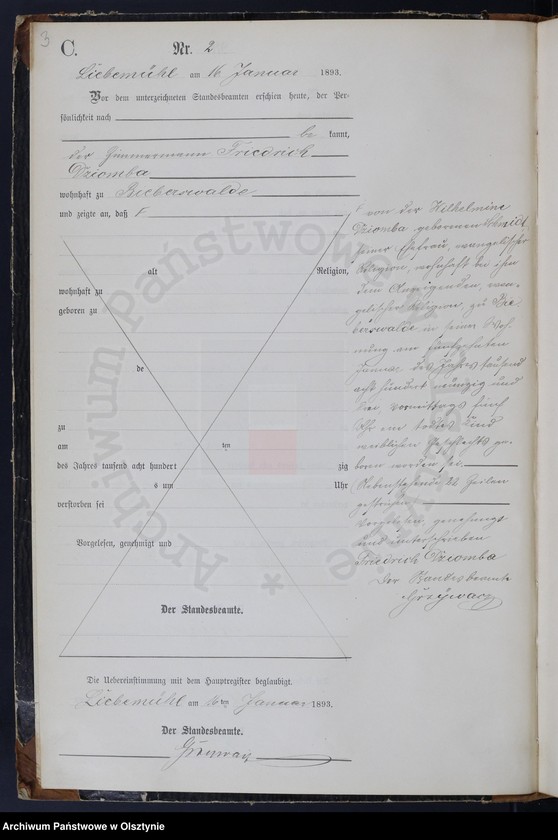 3
C.
Nr. 2
Liebemühl am 16 Januar 1893.
Vor dem unterzeichneten Standesbeamten erschien heute, der Per-
sönlichkeit nach
be kannt,
der Zimmermann Friedrich
Dziomba
wohnhaft zu Bieberswalde
und zeigte an, daß
alt Religion,
wohnhaft zu
geboren zu
de
zu
am ten
des Jahres tausend acht hundert zig
s um Uhr
verstorben sei
Vorgelesen, genehmigt und
Der Standesbeamte.
von der Wilhelmine
Dziomba geborenen Schmidt
seiner Ehefrau, evangelischer
Religion, wohnhaft bei ihm
dem Anzeigenden, evan-
gelischer Religion, zu Bie-
berswalde in seiner Woh-
nung am fünfzehnten
Januar des Jahres tausend
acht hundert neunzig und
drei, vormittags fünf
Uhr ein todtes Kind
weiblichen Geschlechts ge-
boren worden sei.
Nebenstehende 22 Zeilen
gestrichen
Vorgelesen, genehmigt
und unterschrieben
Friedrich Dziomba
Der Standesbeamte
Die Uebereinstimmung mit dem Hauptregister beglaubigt.
Liebemühl am 16ten Januar 1893.
Der Standesbeamte.
Archiwum Państwowe w Olsztynie
Archiwum Państwowe w Olsztynie